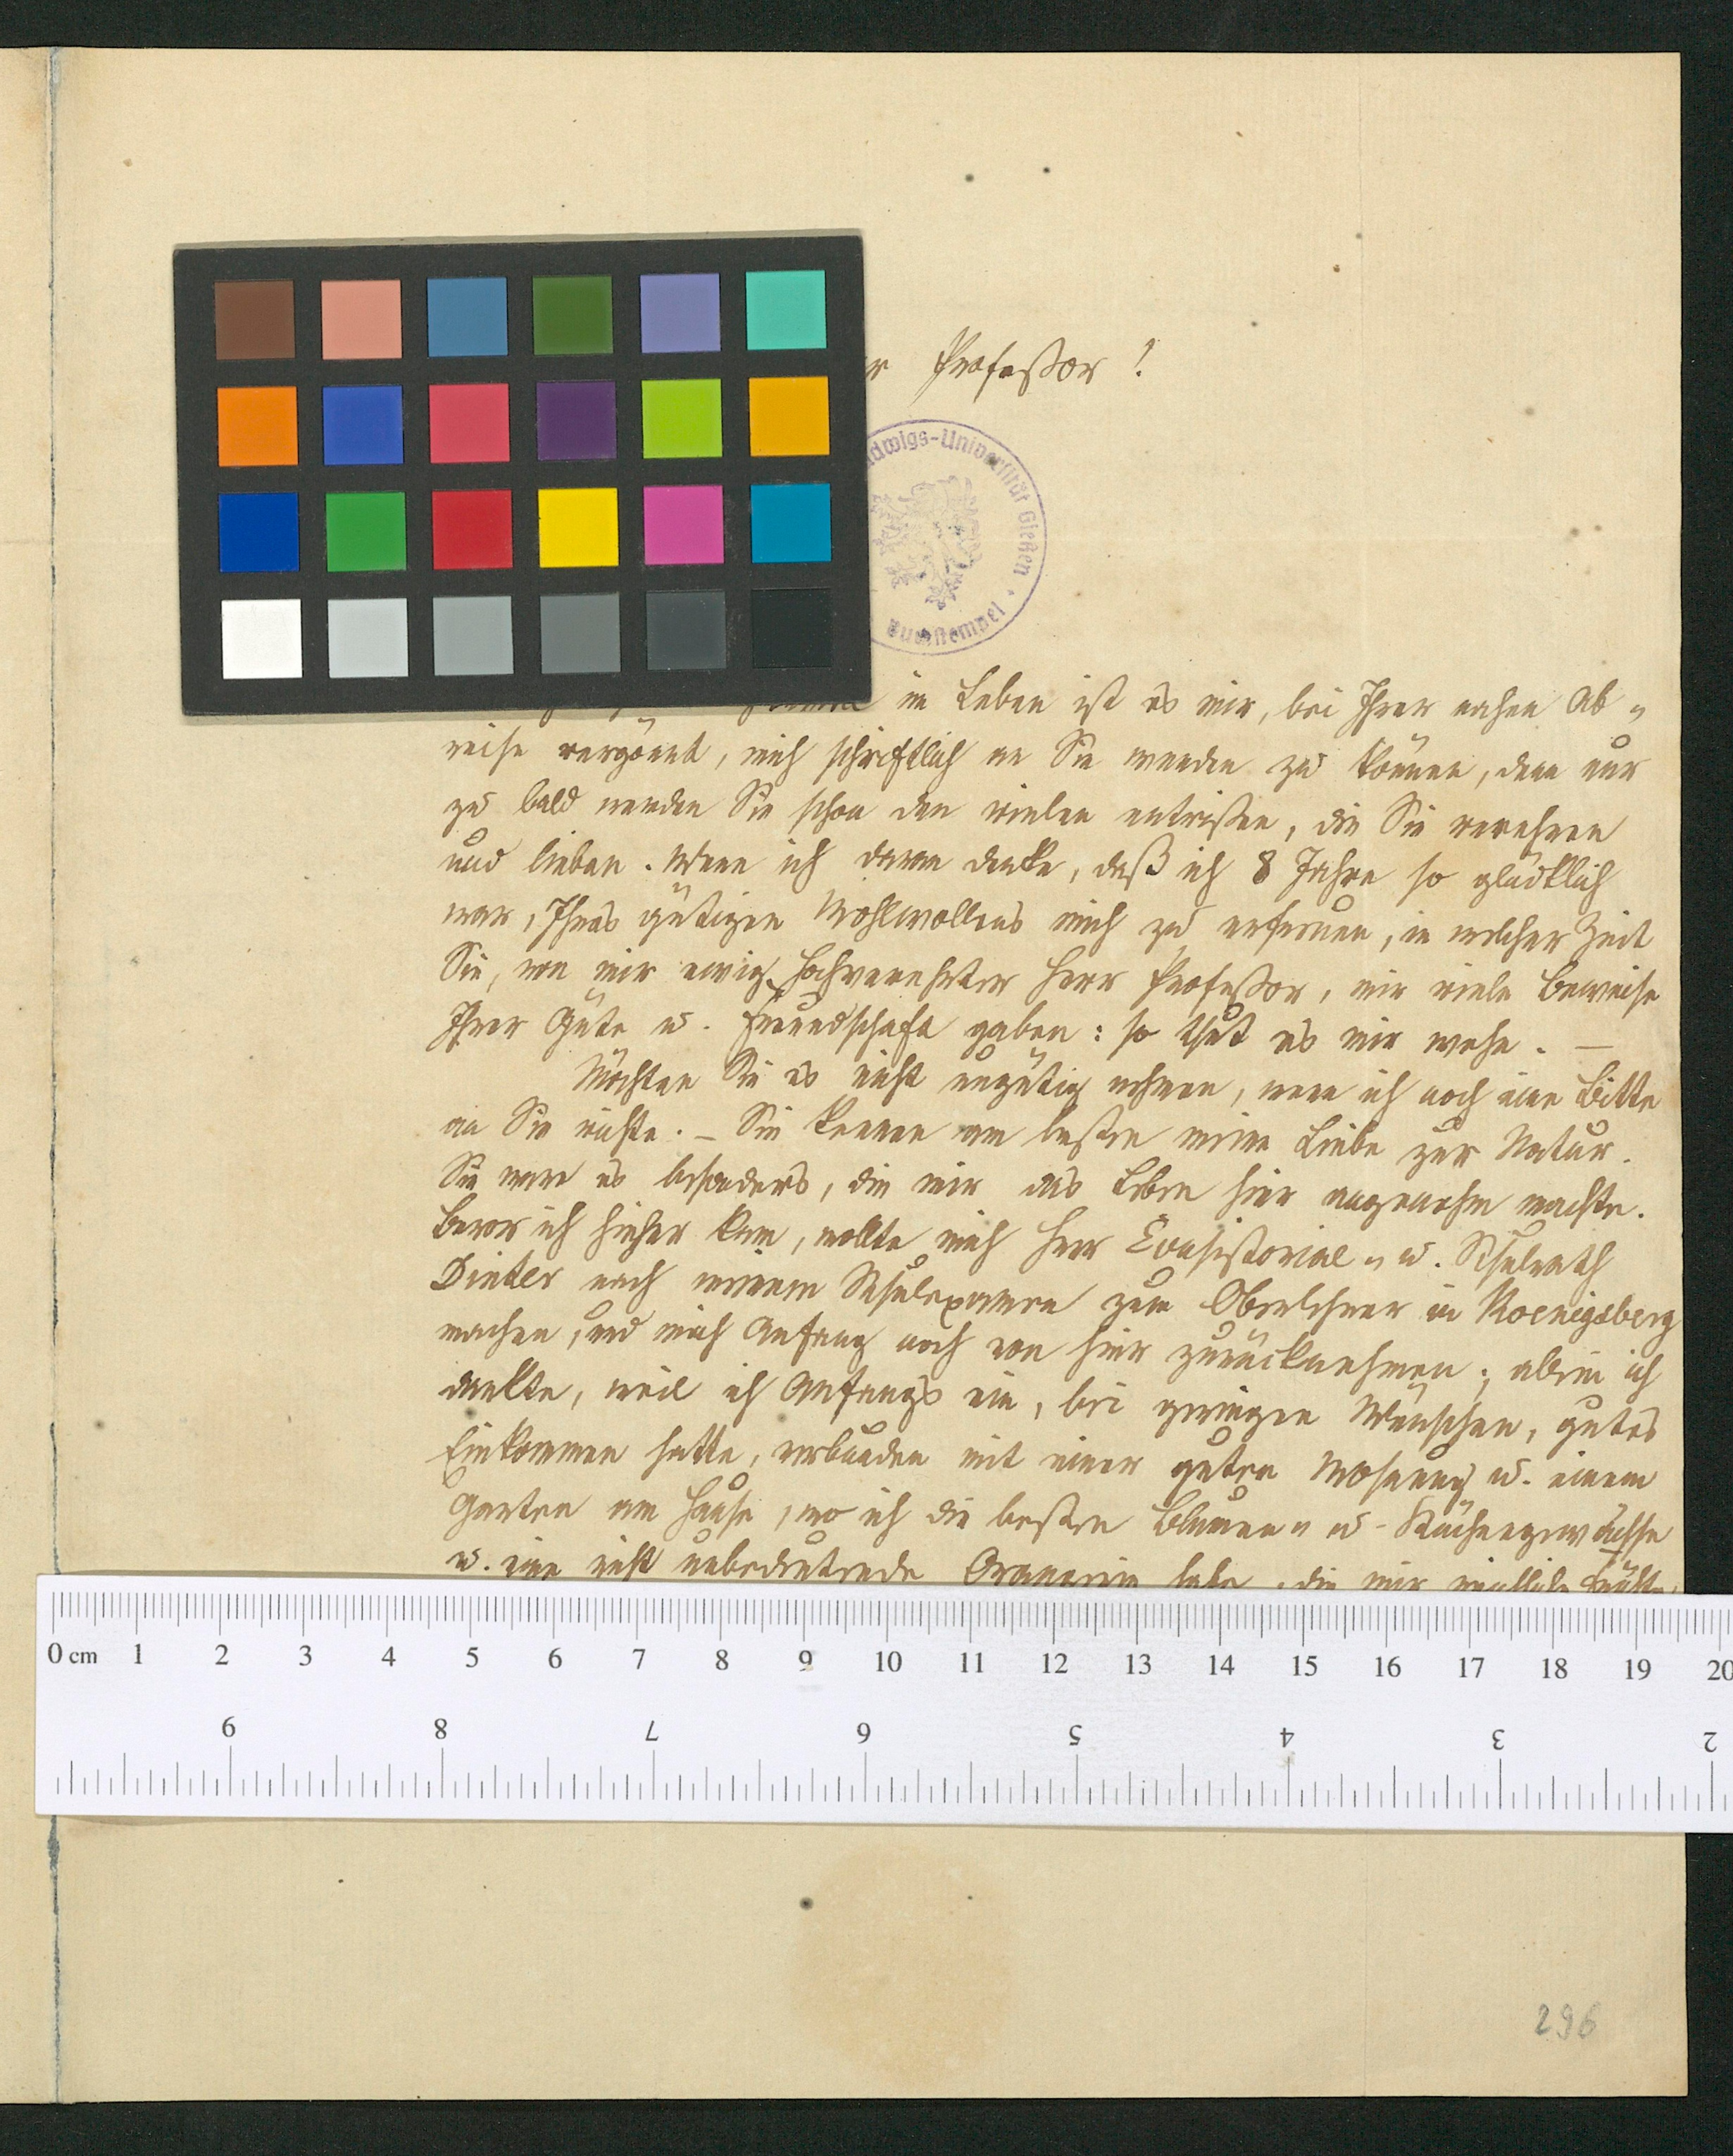 Professor!
Ludwigs-Universität Gießen
Buchstempel
im Leben ist es mir, bei Ihrer nahen Ab„
reise vergönnt, mich schriftlich an Sie wenden zu können, denn nur
zu bald werden Sie schon den vielen entrißen, die Sie verehren
und lieben. Wenn ich daran denke, daß ich 8 Jahre so glücklich
war, Ihres gütigen Wohlwollens mich zu erfreuen, in welcher Zeit
Sie, von mir ewig hochverehrter Herr Profeßor, mir viele Beweise
Ihrer Güte u. Freundschaft gaben: so thut es mir wehe. —
Möchten Sie es nicht ungütig nehmen, wenn ich noch eine Bitte
an Sie richte. – Sie kennen am besten meine Liebe zur Natur.
Sie war es besonders, die mir das Leben hier angenehm machte.
Bevor ich hieher kam, wollte mich Herr Consistorial„ u. Schulrath
Dinter nach meinem Schulexamen zum Oberlehrer in Koenigsberg
machen, und mich Anfang noch von hier zurücknehmen; allein ich
dankte, weil ich Anfangs ein, bei geringen Wünschen, gutes
Einkommen hatte, verbunden mit einer guten Wohnung u. einem
Garten am Hause, wo ich die besten Blumen„ u- Küchengewächse
u. eine nicht unbedeutende Orangerie habe, die mir
0 cm 1 2 3 4 5 6 7 8 9 10 11 12 13 14 15 16 17 18 19 20
9 8 7 6 5 4 3 2
296